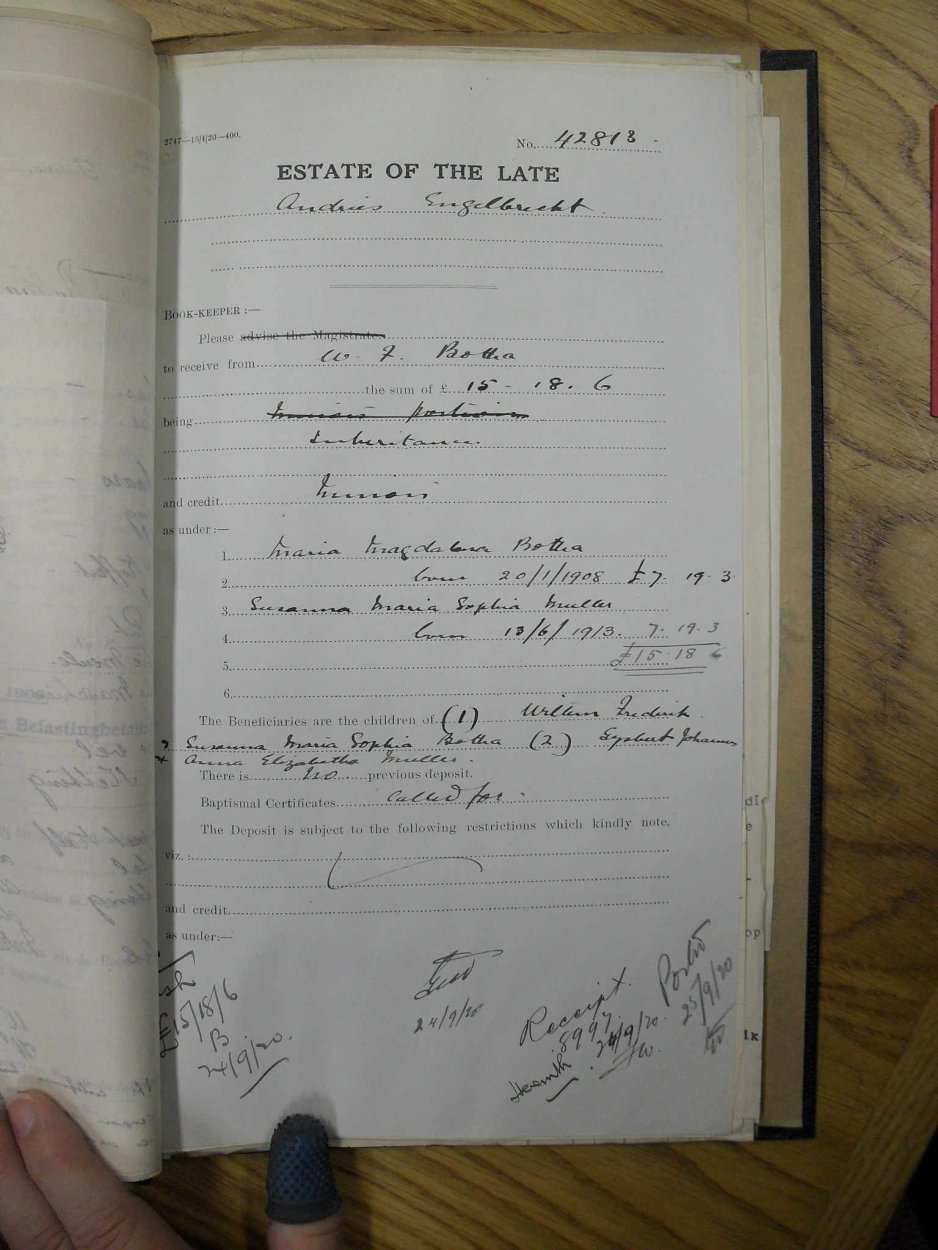 2747—15/4/20—400.
No. 42813.
ESTATE OF THE LATE
Andries Engelbrecht
BOOK-KEEPER :—
Please advise the Magistrate
to receive from W. F. Botha
the sum of £ 15 - 18. 6
being Minors portion
Inheritance
and credit Minors
as under :—
1. Maria Magdalena Botha
2. born 20/1/1908 £7. 19. 3
3. Susanna Maria Sophia Muller
4. born 13/6/1913. 7. 19. 3
5. £15. 18 6
6.
The Beneficiaries are the children of (1) Willem Frederik
Susanna Maria Sophia Botha (2) Gysbert Johannes
Anna Elizabetha Muller.
There is no previous deposit.
Baptismal Certificates called for -
The Deposit is subject to the following restrictions which kindly note,
viz. :
and credit
as under:—
15/18/6
B
24/9/20.
24/9/20
Receipt.
8997.
24/9/20.
Herewith
Posted
25/9/20